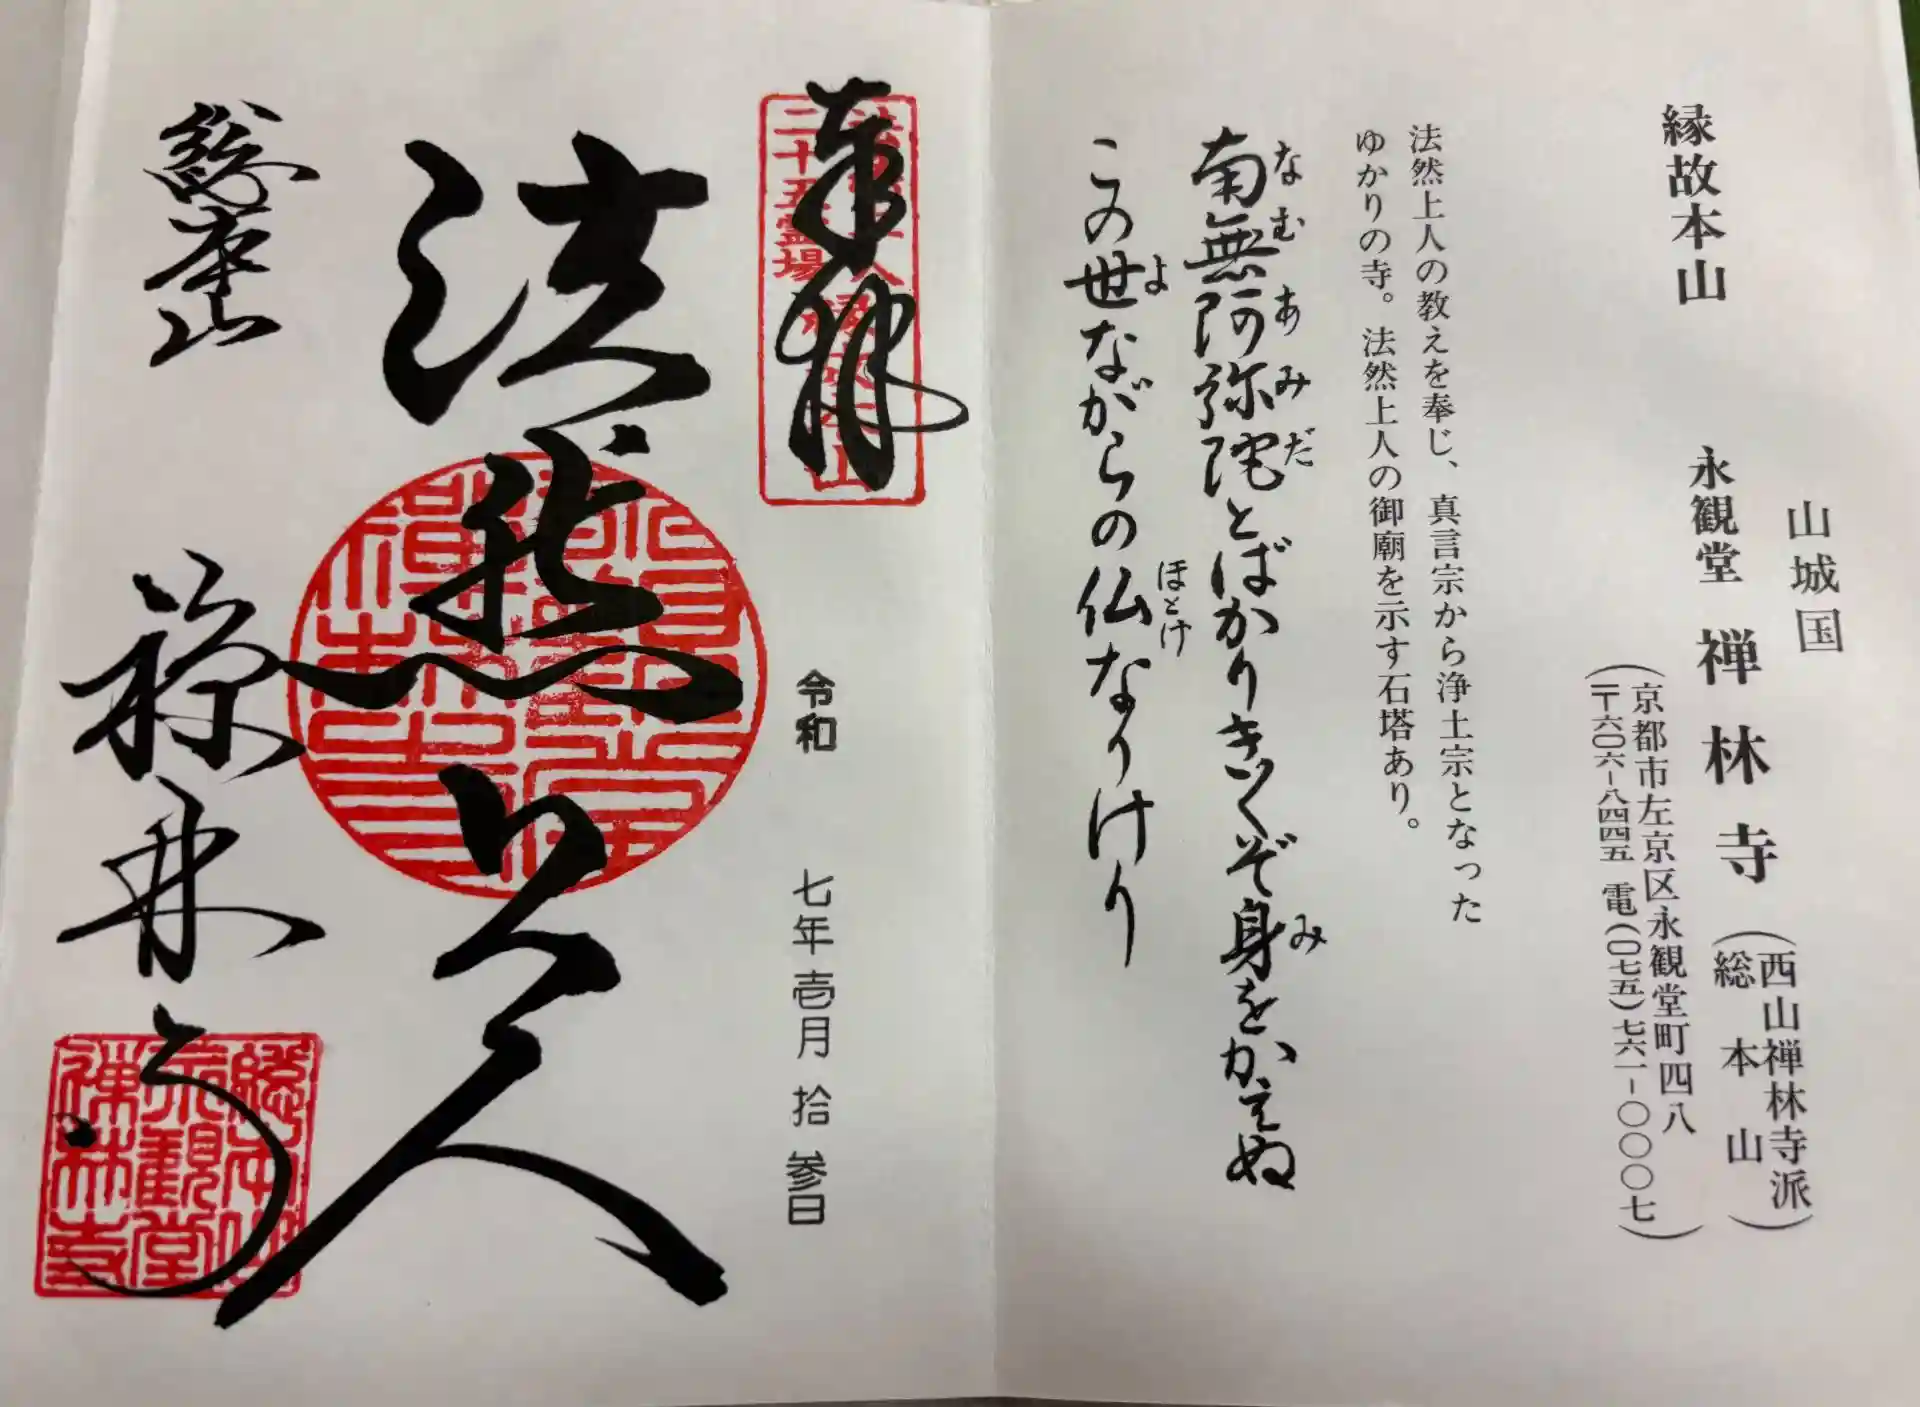 山城国
縁故本山 永観堂 禅林寺(西山禅林寺派 総本山)
(京都市左京区永観堂町四八
〒六〇六-八四四五 電(〇七五)七六一-〇〇〇七)
法然上人の教えを奉じ、真言宗から浄土宗となった
ゆかりの寺。法然上人の御廟を示す石塔あり。
南無阿弥陀とばかりきくぞ身をかえぬ
なむあみだ
み
この世ながらの仏なりけり
よ
ほとけ
奉拝
二十五霊場
令和 七年壱月拾参日
法然上人
総本山 禅林寺
総本山
永観堂
禅林寺